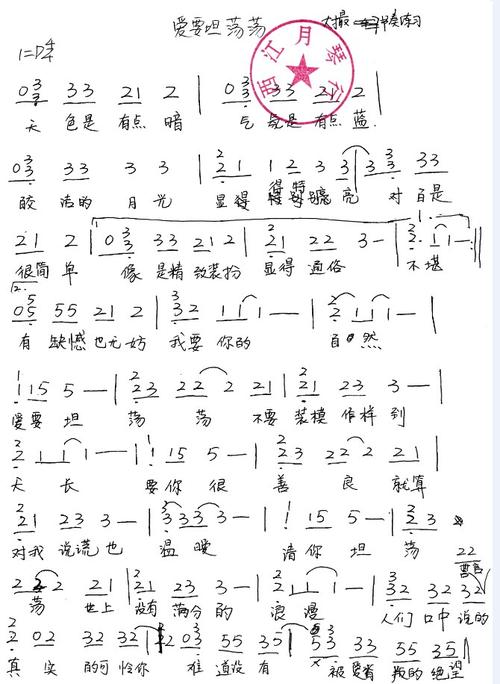 爱要坦荡荡
西江月琴行
1=D 4/4
03 33 21 2 | 03 33 21 2 |
天 色是 有点 暗 气 氛是 有点 蓝
03 33 3 3 | 21 12 3 3 | 33 33
皎 洁的 月光 显得 特别 亮 对白是
21 2 | 03 33 21 2 | 21 22 3 — | 2· 11 — :||
很简单 像是精致装扮 显得通俗 不堪
05 55 21 2 | 32 111 — | 2111 — |
有 缺憾也无妨 我要你的 自然
115 5 — | 23 22 2 21 | 21 23 3 — |
爱要坦 荡 荡 不要 装模作样到
2 111 — | 115 5 — | 23 222 21 |
天长 要你很 善 良 就算
21 23 3 — | 3333 — | 115 5 — | 223
对我 说谎也 温暖 请你坦荡
222 21 | 21 23 3 — | 2111 — | 32 32 32
荡 世上 没有满分的 浪漫 人们口中说的
2 02 32 32 | 22 03 55 35 | 53 33 55 35 |
真 实的可怜你 难道没有 被爱 叛的绝望